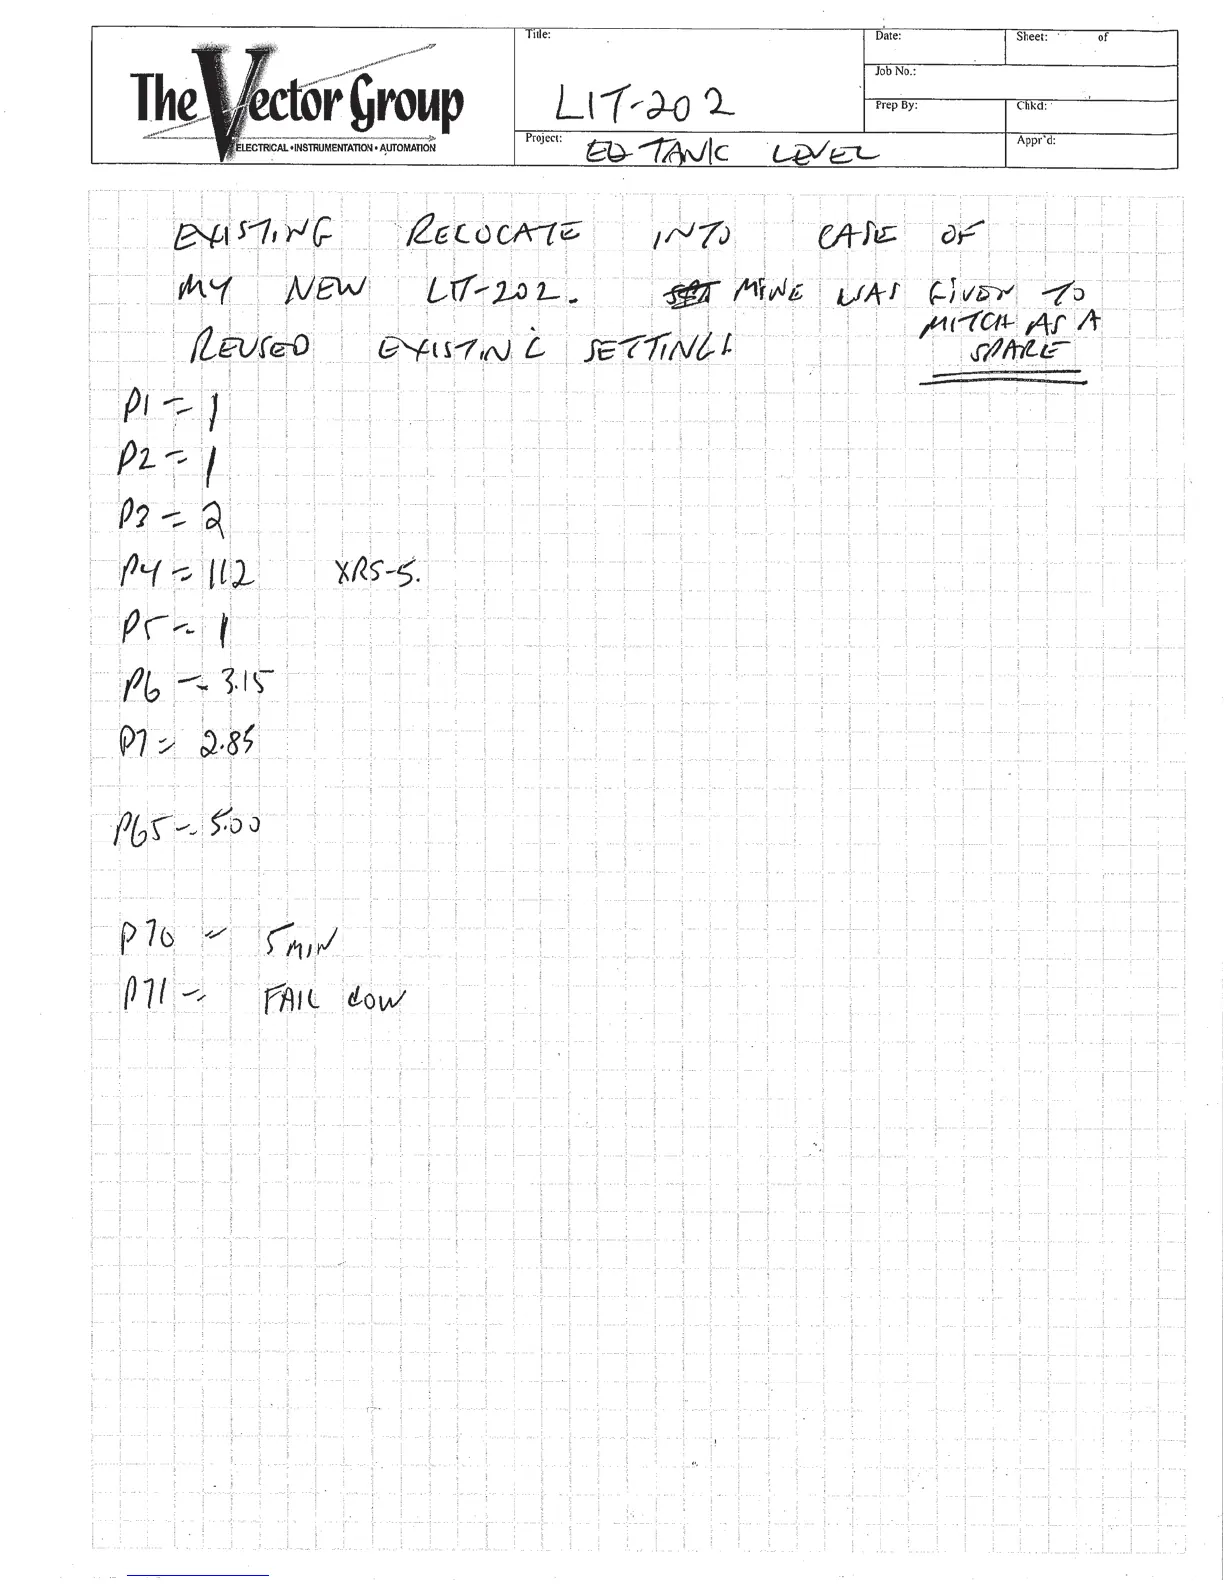 The Vector Group
ELECTRICAL • INSTRUMENTATION • AUTOMATION
Title:
LIT-202
Project: EQ TANK LEVEL
Date:
Sheet: of
Job No.:
Prep By:
Chkd:
Appr'd:
EXISTING RELOCATE INTO CASE OF
MY NEW LIT-202. MINE WAS GIVEN TO
MITCH AS A
SPARE
REUSED EXISTING SETTINGS
P1 = 1
P2 = 1
P3 = 2
P4 = 112 XRS-5.
P5 = 1
P6 = 3.15
P7 = 2.85
P65 = 5.00
P70 = 5 MIN
P71 = FAIL LOW